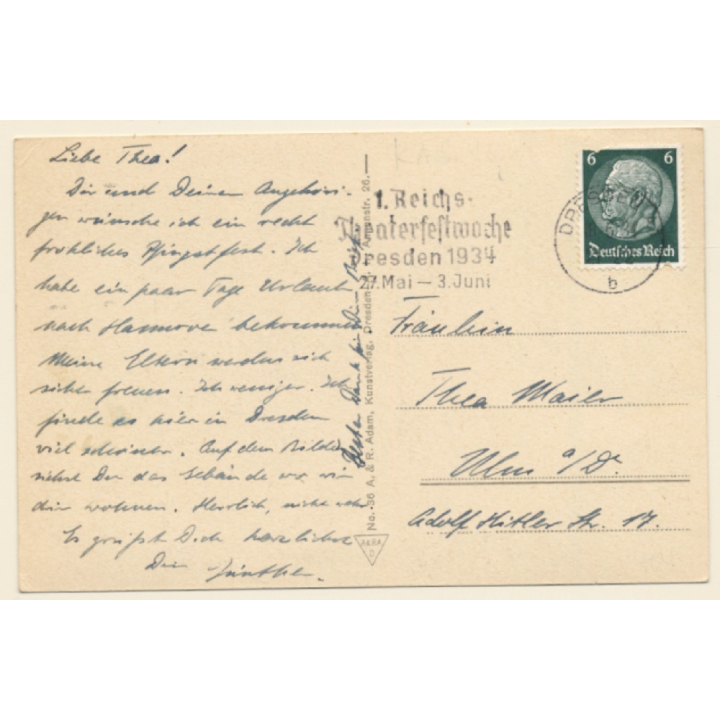 Liebe Thea!
Dir und Deinen Angehöri-
gen wünsche ich ein recht
fröhliches Pfingstfest. Ich
habe ein paar Tage Urlaub
nach Hannover bekommen.
Meine Eltern werden sich
sicher freuen. Ich weniger. Ich
finde es hier in Dresden
viel schöner. Auf dem Bilde
siehst Du das Gebäude wo wir
drin wohnen. Herrlich, nicht wahr
Es grüßt Dich herzlichst
Dein Günther.
Dank für Brief
No. 36 A. & R. Adam, Kunstverlag, Dresden Annenstr. 26.
AKRA
D
1. Reichs-
Theaterfestwoche
Dresden 1934
27. Mai – 3. Juni
6 6
Deutsches Reich
b
Fräulein
Thea Maier
Ulm a/D.
Adolf Hitler Str. 17.